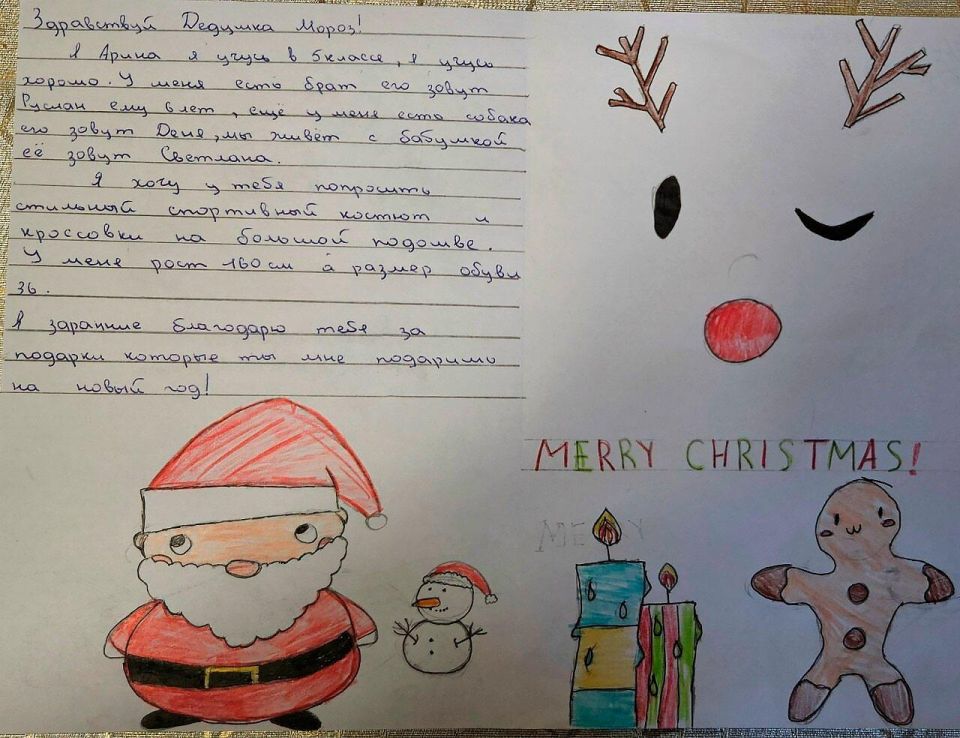 Здравствуй Дедушка Мороз!
Я Арина я учусь в 5 классе, я учусь
хорошо. У меня есть брат его зовут
Руслан ему 6 лет, ещё у меня есть собака
его зовут Деня, мы живёт с бабушкой
её зовут Светлана.
Я хочу у тебя попросить
стильный спортивный костюм и
кроссовки на большой подошве.
У меня рост 160 см а размер обуви
36.
Я заранние благодарю тебя за
подарки которые ты мне подаришь
на новый год!
MERRY CHRISTMAS!
ME Y